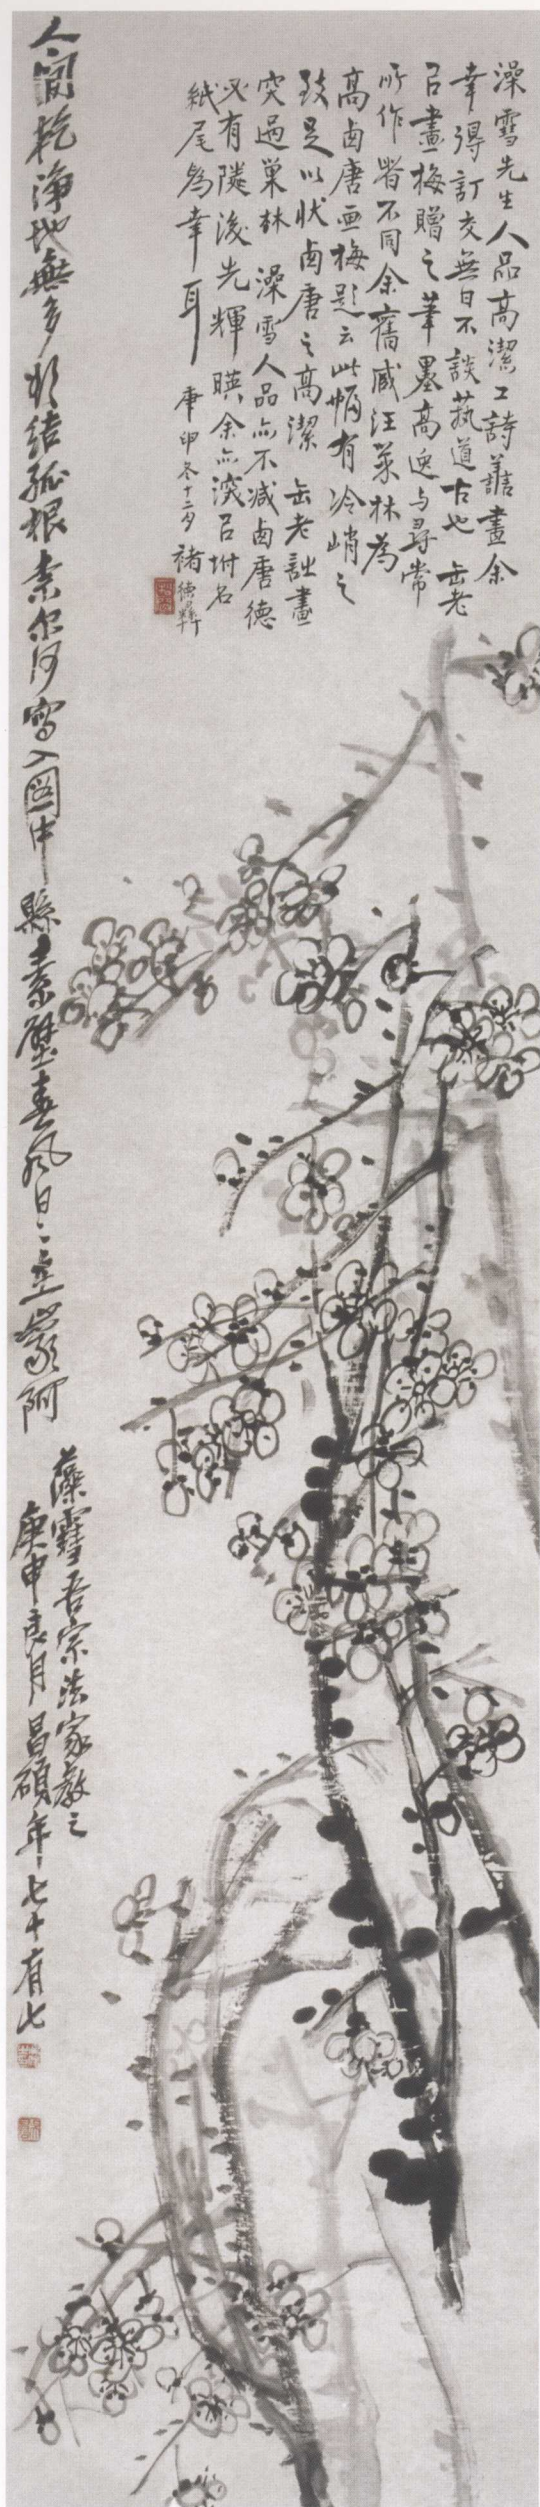 澡雪先生人品高潔工詩譱畫余
幸得訂交無日不談埶道古也缶老
㠯畫梅贈之筆墨高逸与尋常
所作者不同余舊臧汪巢林為
高鹵唐画梅題云此幀有冷峭之
致是以狀鹵唐之高潔缶老詘畫
突過巢林澡雪人品亦不減鹵唐德
必有隣後先輝暎余亦漫㠯坿名
紙尾為幸耳
庚申冬十二夕褚德彝
人間乾淨地無多難結孤根素尔何寫入圖中縣素壁春風日二立蒙阿
藻雪吾宗法家教之
庚申良月昌碩年七十有七